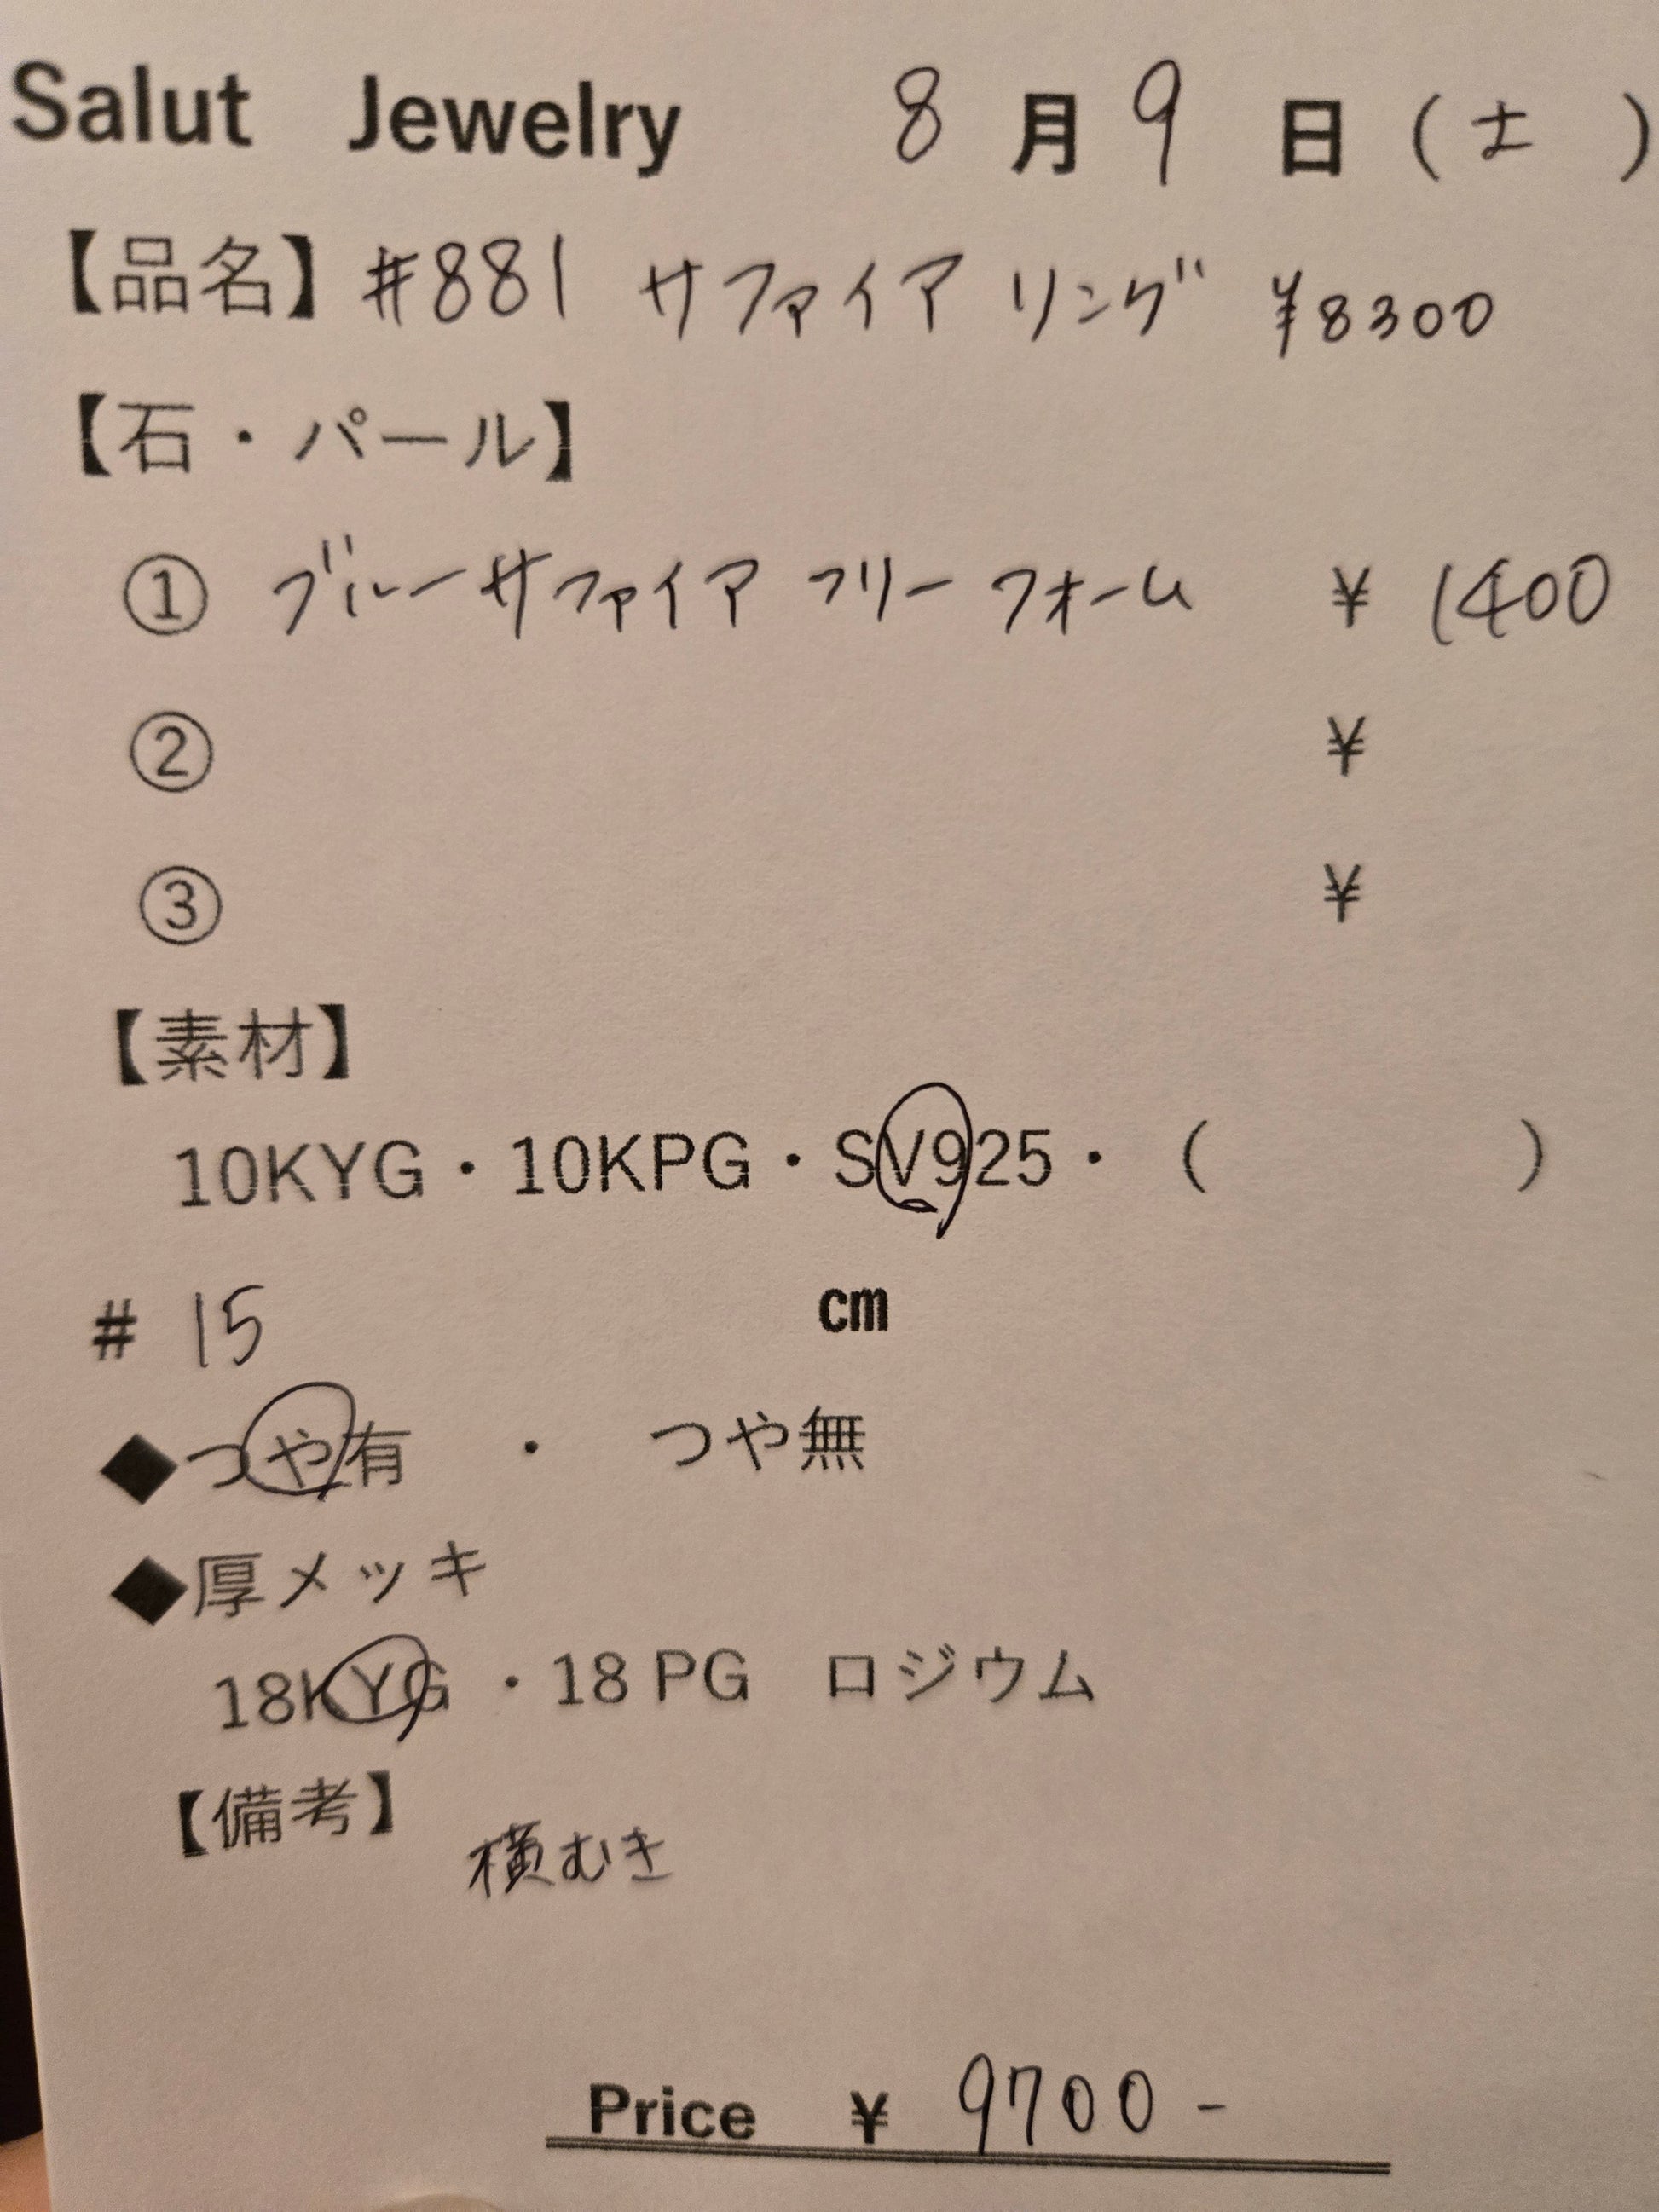 Salut Jewelry 8月9日(土)
【品名】#881 サファイア リング ¥8300
【石・パール】
① ブルーサファイア フリーフォーム ¥1400
② ¥
③ ¥
【素材】
10KYG・10KPG・SV925・( )
# 15 cm
◆つや有 ・ つや無
◆厚メッキ
18KYG ・18 PG ロジウム
【備考】
横むき
Price ¥ 9700-